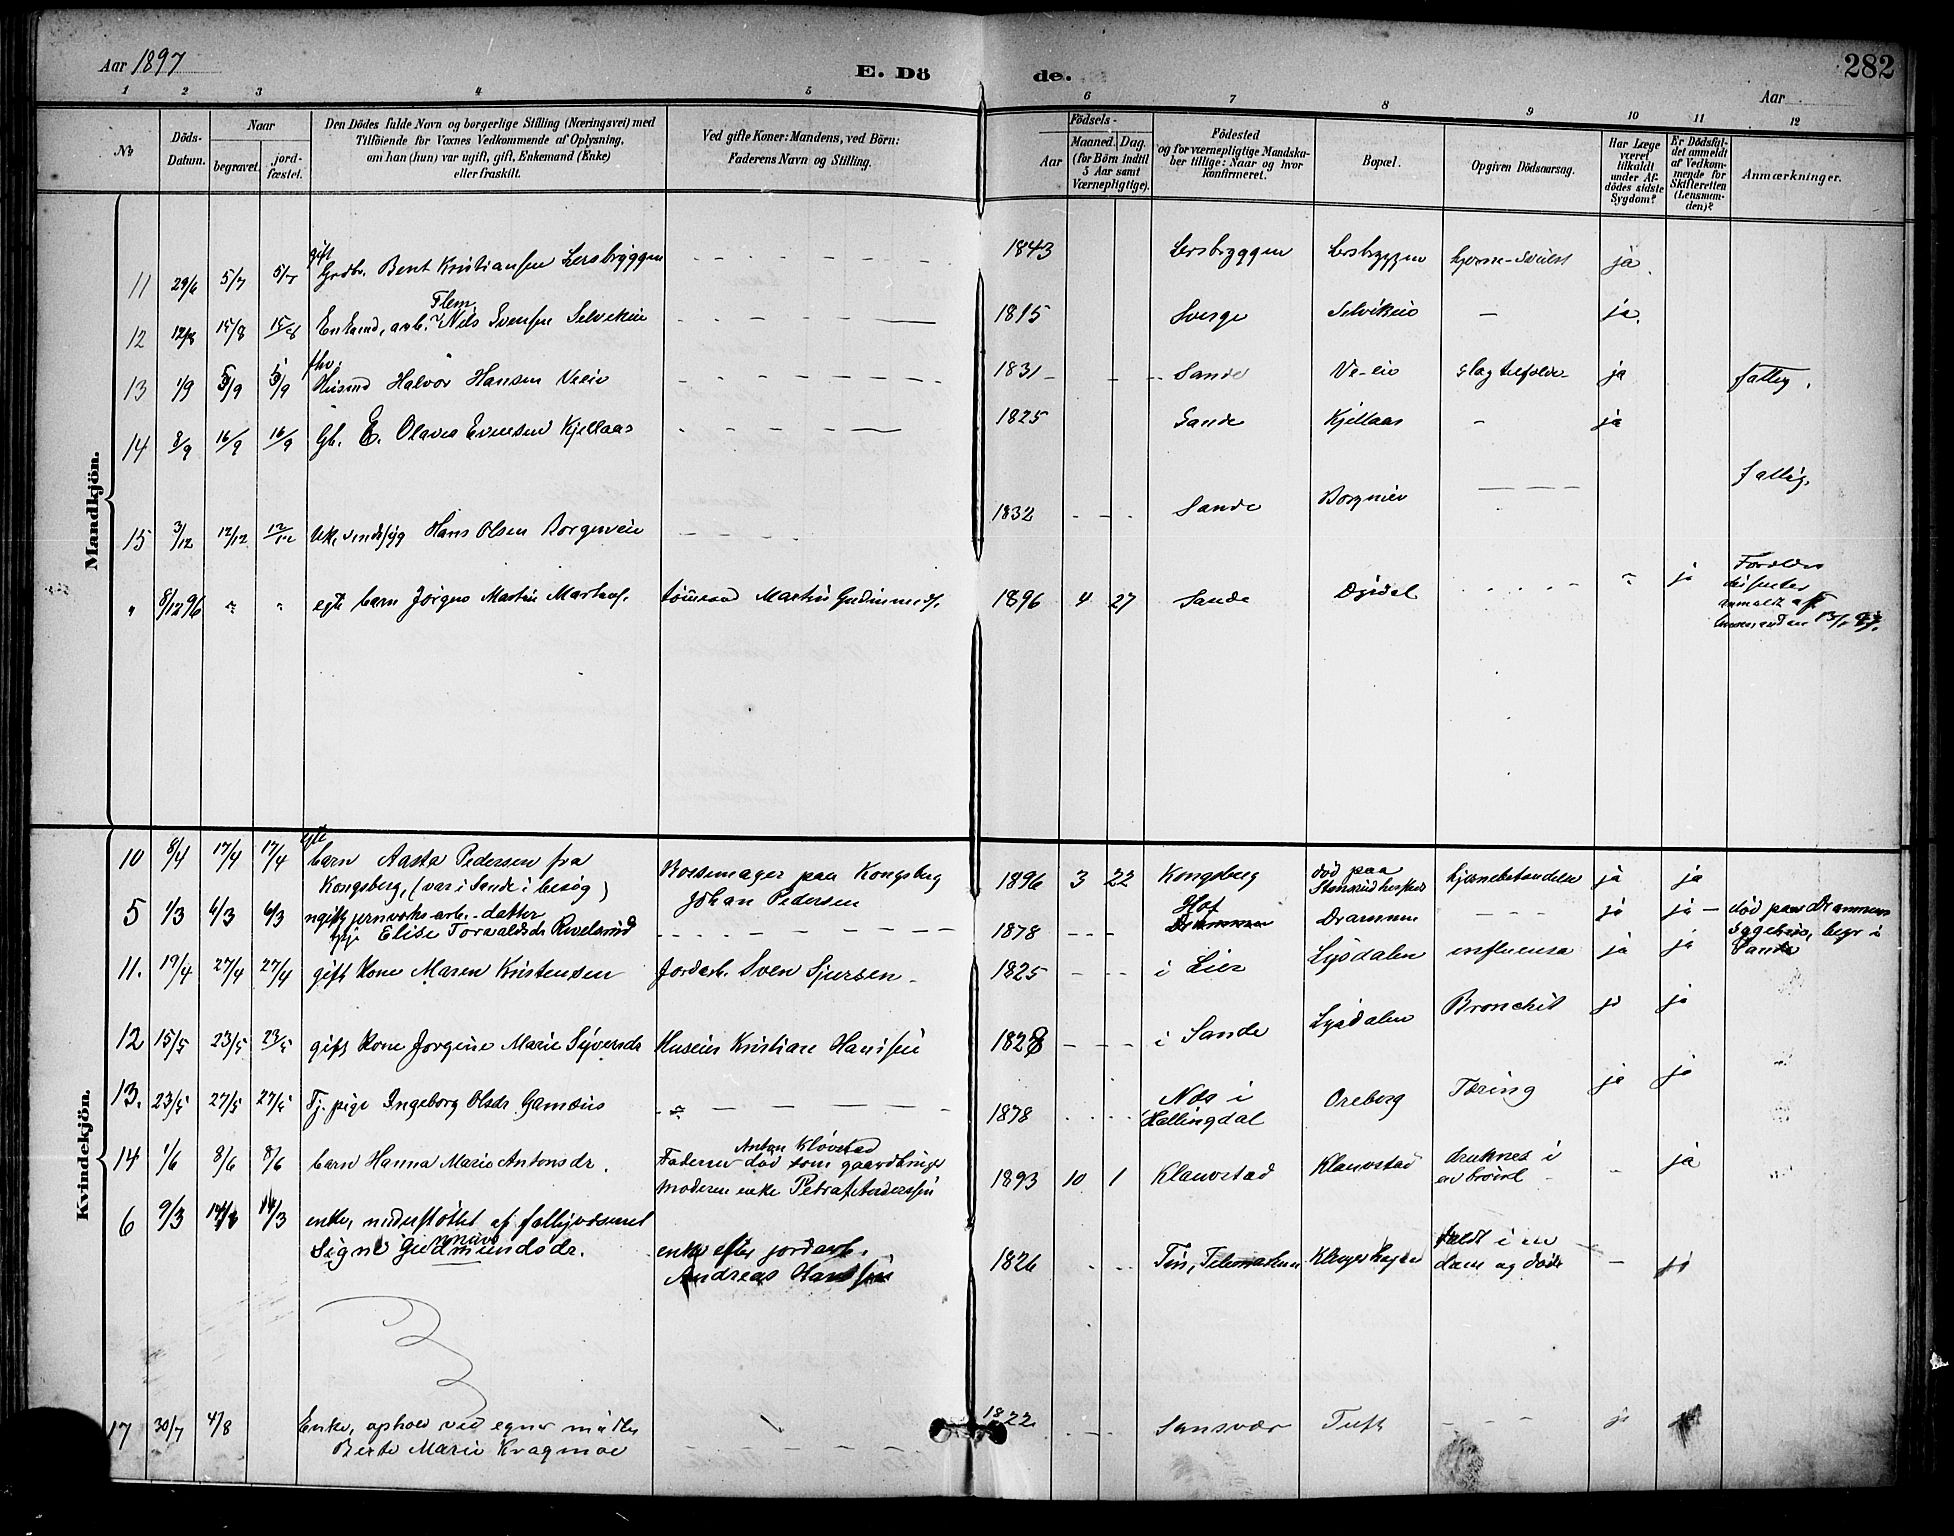 Aar 1897
E. Dö
de.
282
Aar
1 2 3 4 5 6 7 8 9 10 11 12
No.
Döds-Datum.
Naar
begravet.
jord-fæstet.
Den Dödes fulde Navn og borgerlige Stilling (Næringsvei) med
Tilföiende for Voxnes Vedkommende af Oplysning,
om han (hun) var ugift, gift, Enkemand (Enke)
eller fraskilt.
Ved gifte Koner: Mandens, ved Börn:
Faderens Navn og Stilling.
Födsels-
Aar
Maaned. Dag.
(for Börn indtil
5 Aar samt
Værnepligtige).
Födested
og for værnepligtige Mandska-
ber tillige: Naar og hvor
konfirmeret.
Bopæl.
Opgiven Dödsaarsag.
Har Læge
været
tilkaldt
under Af-
dödes sidste
Sygdom?
Er Dödsfal-
det anmeldt
af Vedkom-
mende for
Skifteretten
(Lensman-
den)?
Anmærkninger.
Mandkjön.
11 29/6 5/7 5/7 gift Grdbr. Bent Kristiansen Lersbryggen 1843 Lersbryggen Lersbryggen ja
12 12/8 15/8 15/8 Enkmd, arb. Nils Svensen Selvikeie 1815 Sverge Selvikeie — ja.
13 1/9 5/9 5/9 fhv. Husmd Halvor Hansen Veeie 1831 Sande Ve-eie ja fattig.
14 8/9 16/9 16/9 Gb. E. Olaves Evensen Kjellaas 1825 Sande Kjellaas - ja
15 3/12 12/12 12/12 Hans Olsen 1832 Sande fattig.
" 8/12 96 " " egte barn Jörgen Martin Martins. Martin 1896 4 27 Sande " ja Forældre
anmeldt af
13/1 97.
Kvindekjön.
10 8/4 17/4 17/4 egte barn Aasta Pedersen fra
Kongsberg, (var i Sande i besög) paa Kongsberg
Johan Pedersen 1896 3 22 Kongsberg död paa ja ja
5 1/3 6/3 6/3 ugift jernverksarb.-datter
Elise Toravaldsdr Revelsrud 1878 Hof Drammen Drammen - - - ja ja — död paa Drammens
Sygehus, begr i
Sande
11. 19/4 27/4 27/4 gift Kone Maren Kristensen Jordarb. Sven Sjursen 1825 i Lier Lysdalen influensa ja ja
12 15/5 23/5 23/5 gift Kone Jorgine Marie Syversdr Huseier Kristian Hansen 1828 i Sande Lysdalen Bronchit ja ja
13. 23/5 27/5 27/5 Tj. pige Ingeborg Olsdr 1878 Næs i
Hallingdal Oreberg Tæring ja ja
14 1/6 8/6 8/6 barn Hanna Marie Antonsdr. Anton Klovstad
Faderen död som gaardbruger
moderen enke Petra Anderssen 1893 10 1 Klauvstad Klauvstad druknet i
en brönd - ja
6 9/3 14/3 14/3 enke, understöttet af fattigvæsenet
Signe Gudmundsdr. enke efter jordarb.
Andreas Hanssen 1826 Tin, Telemarken faldt i en
dam og döde — ja
17 30/7 4/8 Enke, ophold ved egne midler
Berte Marie Kragmoe 1822 Sansvær Tuft - - - ja